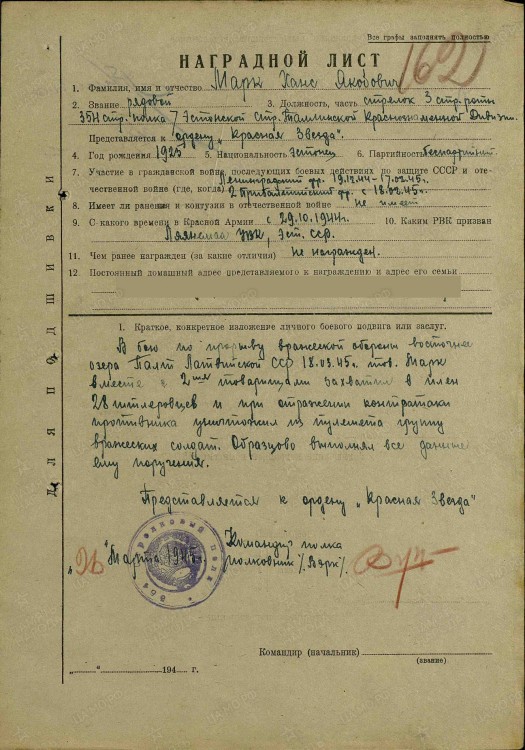 Все графы заполнять полностью
162
НАГРАДНОЙ ЛИСТ
1. Фамилия, имя и отчество Марк Ханс Якобович
2. Звание рядовой 3. Должность, часть стрелок 3 стр. роты
354 стр. полка 7 Эстонской Стр. Таллинской Краснознаменной Дивизии.
Представляется к ордену „Красная Звезда".
4. Год рождения 1925 5. Национальность эстонец 6. Партийность беспартийный.
7. Участие в гражданской войне, последующих боевых действиях по защите СССР и оте-
чественной войне (где, когда) Ленинградский фр. 19.12.44-17.02.45г.
2 Прибалтийский фр. с 18.02.45г.
8. Имеет ли ранения и контузии в отечественной войне не имеет
9. С какого времени в Красной Армии с 29.10.1944г. 10. Каким РВК призван
УВК, Эст. ССР.
11. Чем ранее награжден (за какие отличия) не награжден.
12. Постоянный домашний адрес представляемого к награждению и адрес его семьи
I. Краткое, конкретное изложение личного боевого подвига или заслуг.
В бою по прорыву вражеской обороны восточнее
озера Латвийской ССР 18.03.45г. тов. Марк
вместе с 2-мя товарищами захватил в плен
28 гитлеровцев и при отражении контратаки
противника уничтожил из пулемета группу
вражеских солдат. Образцово выполнял все данные
ему поручения.
Представляется к ордену „Красная Звезда"
Командир полка
полковник /Вырк/.
„26" Марта 1945г.
Командир (начальник)
(звание)
„ " 194 г.
ДЛЯ ПОДШИВКИ